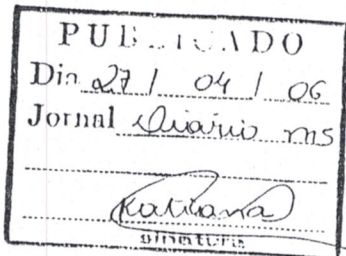 PUBLICADO
Dia 27 / 04 / 06
Jornal Diário MS
Katiana
assinatura